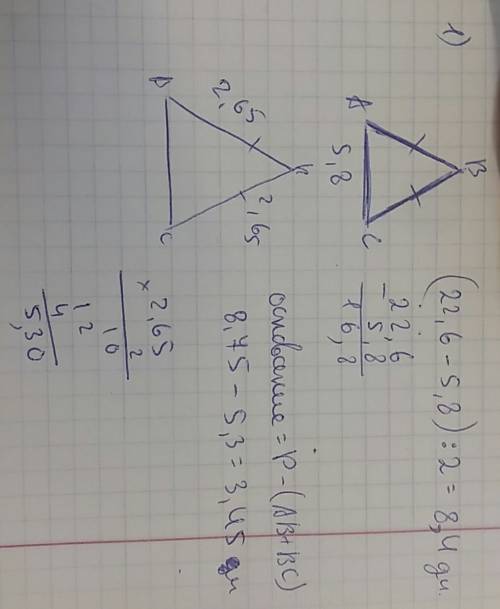 1)
B
A
C
5,8
(22,6 - 5,8) : 2 = 8,4 дм.
- 22,6
5,8
16,8
B
A
C
2,65
2,65
основание = P - (AB + BC)
8,75 - 5,3 = 3,45 дм
× 2,65
2
10
12
4
5,30